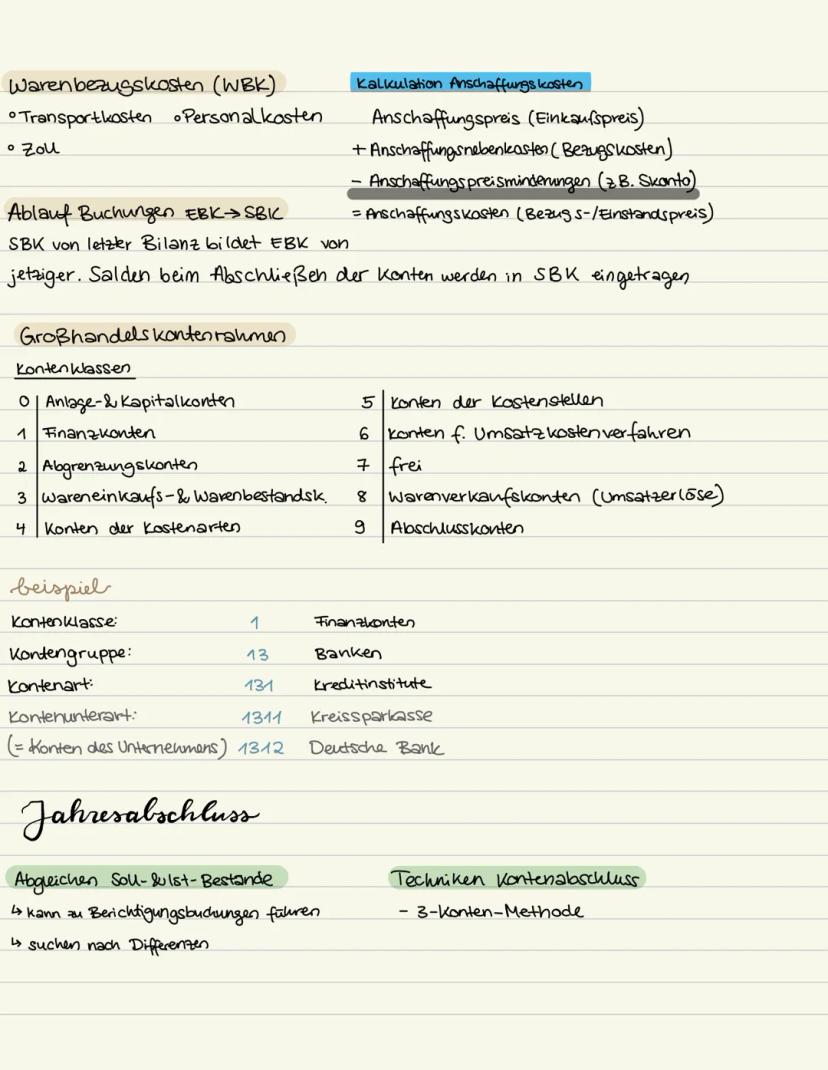 Warenbezugskosten (WBK)
◦ Transportkosten ◦ Personalkosten
◦ Zoll
Kalkulation Anschaffungskosten
Anschaffungspreis (Einkaufspreis)
+ Anschaffungsnebenkosten (Bezugskosten)
- Anschaffungspreisminderungen (z.B. Skonto)
= Anschaffungskosten (Bezugs-/Einstandspreis)
Ablauf Buchungen EBK → SBK
SBK von letzter Bilanz bildet EBK von
jetziger. Salden beim Abschließen der Konten werden in SBK eingetragen
Großhandelskontenrahmen
Kontenklassen
0 Anlage- & Kapitalkonten
1 Finanzkonten
2 Abgrenzungskonten
3 Wareneinkaufs- & Warenbestandsk.
4 Konten der Kostenarten
5 Konten der Kostenstellen
6 Konten f. Umsatzkostenverfahren
7 frei
8 Warenverkaufskonten (Umsatzerlöse)
9 Abschlusskonten
beispiel
Kontenklasse: 1 Finanzkonten
Kontengruppe: 13 Banken
Kontenart: 131 Kreditinstitute
Kontenunterart: 1311 Kreissparkasse
(= Konten des Unternehmens) 1312 Deutsche Bank
Jahresabschluss
Abgleichen Soll- & Ist-Bestände
↳ kann zu Berichtigungsbuchungen führen
↳ suchen nach Differenzen
Techniken Kontenabschluss
- 3-Konten-Methode